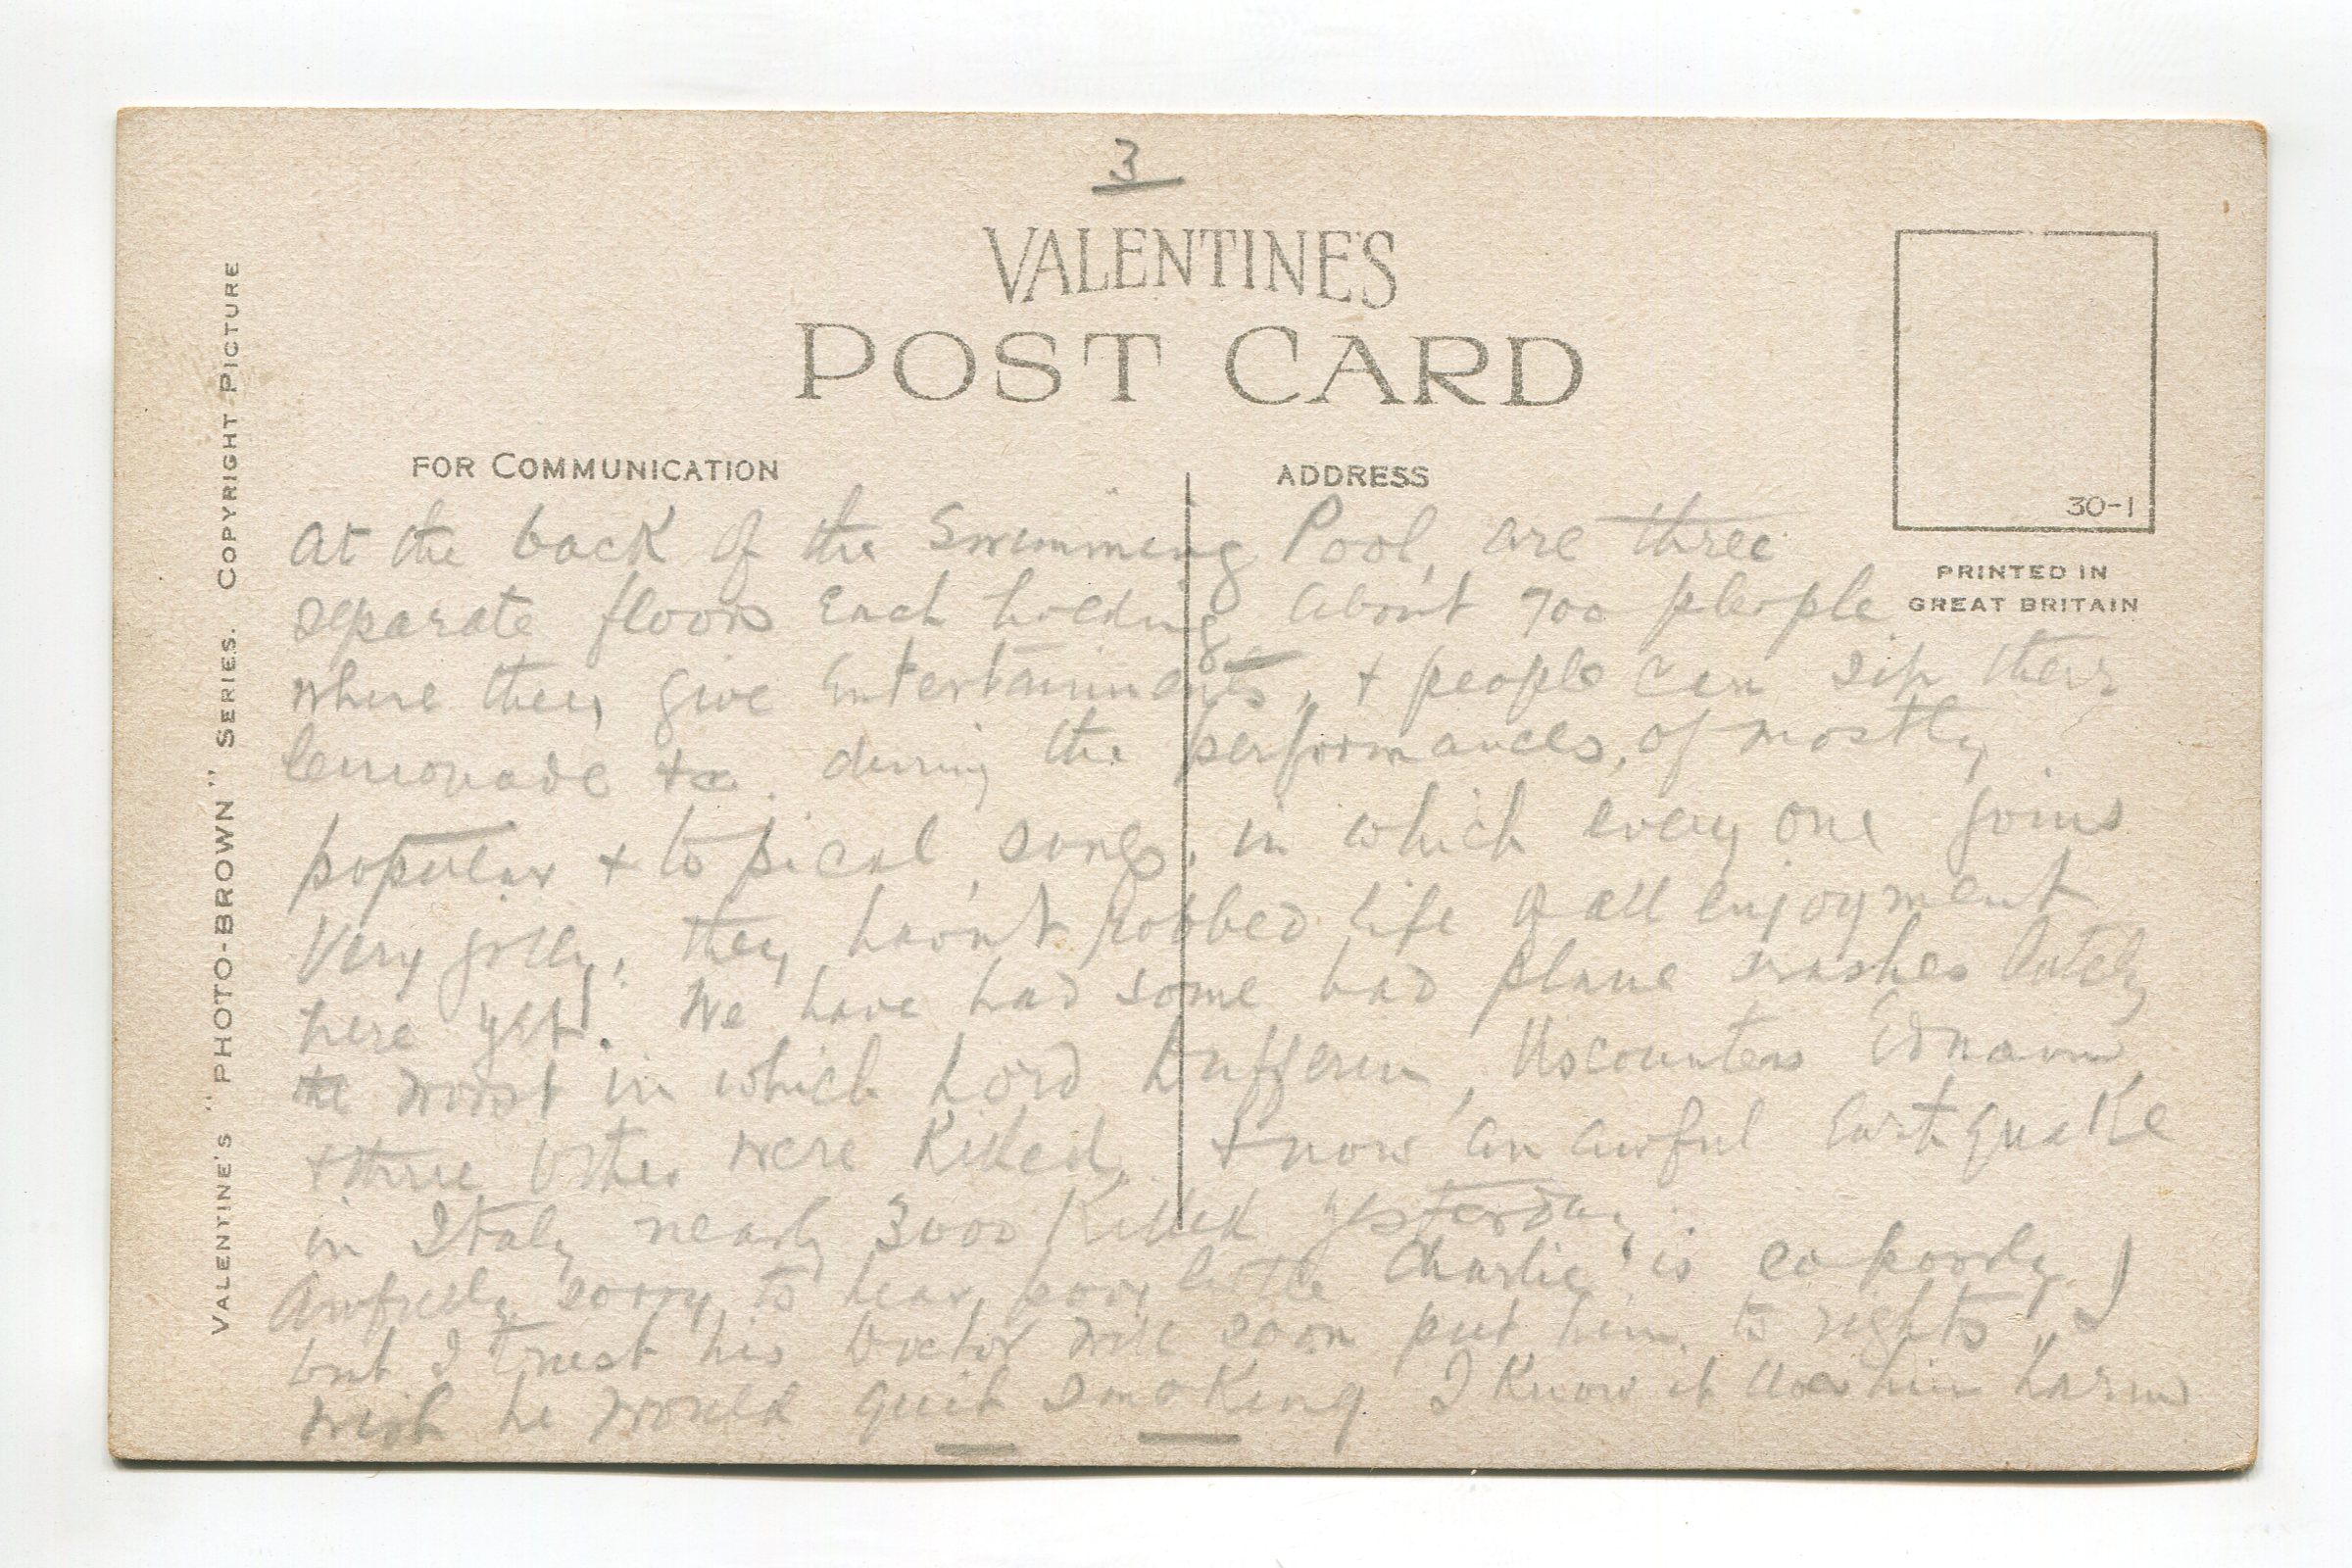 3
VALENTINE'S
POST CARD
FOR COMMUNICATION
ADDRESS
30-1
PRINTED IN
GREAT BRITAIN
VALENTINE'S "PHOTO-BROWN" SERIES. COPYRIGHT PICTURE
At the back of the Swimming Pool, are three
separate floors Each holding about 700 people
where they give Entertainments, + people can sip their
lemonade +c. during the performances, of mostly
popular + topical songs, in which every one joins
Very jolly, they havn't robbed life of all enjoyment
here yet! We have had some bad plane smashes lately
the worst in which Lord Dufferin, Viscountess Ednam
+ three others were Killed, + now an awful Eartquake
in Italy nearly 3000 Killed yesterday.
Awfully sorry, to hear, poor little Charlie is so poorly
but I trust his Doctor will soon put him to rights, I
wish he would quit smoKing I Know it does him harm